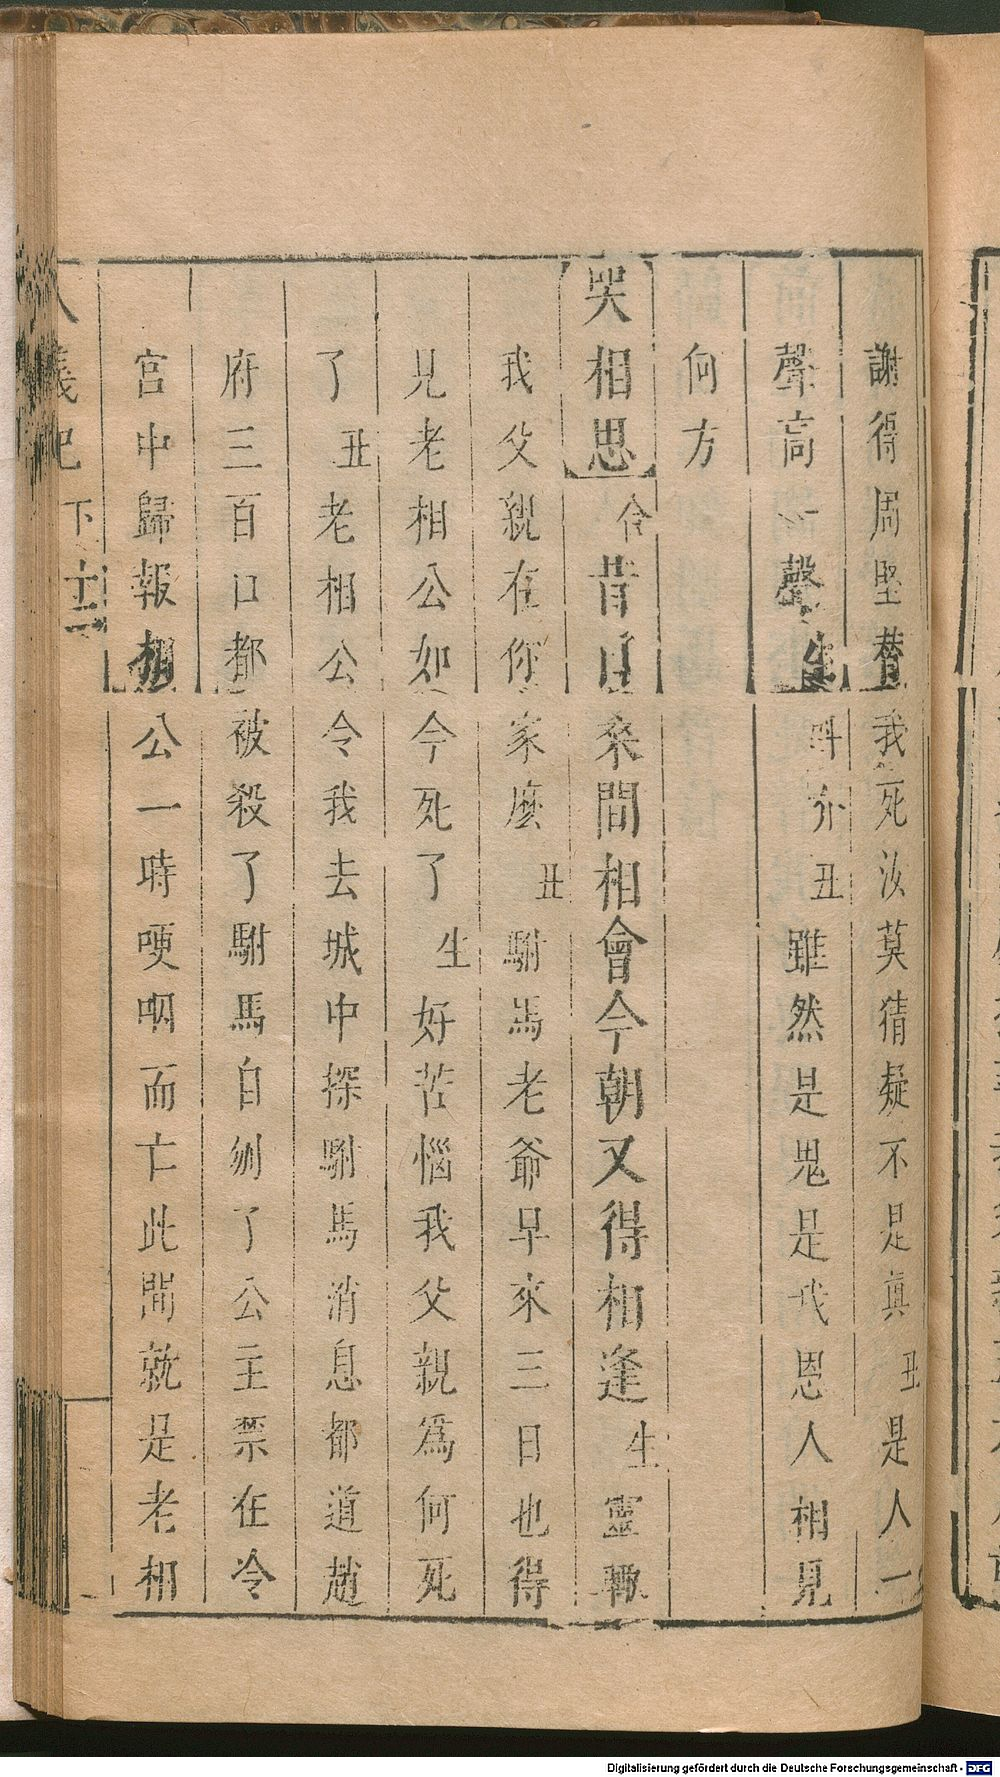 謝得周堅替我死汝莫猜疑不是眞 丑 是人一
聲高一聲 生 叫介 丑 雖然是鬼是我恩人相見
何方
哭相思 合 昔日桑間相會今朝又得相逢 生 靈輒
我父親在你家麽 丑 駙馬老爺早來三日也得
見老相公如今死了 生 好苦惱我父親爲何死
了 丑 老相公令我去城中探駙馬消息都道趙
府三百口都被殺了駙馬自刎了公主禁在冷
宮中歸報相公一時哽咽而亡此間就是老相
八義記 下 十二
Digitalisierung gefördert durch die Deutsche Forschungsgemeinschaft - DFG